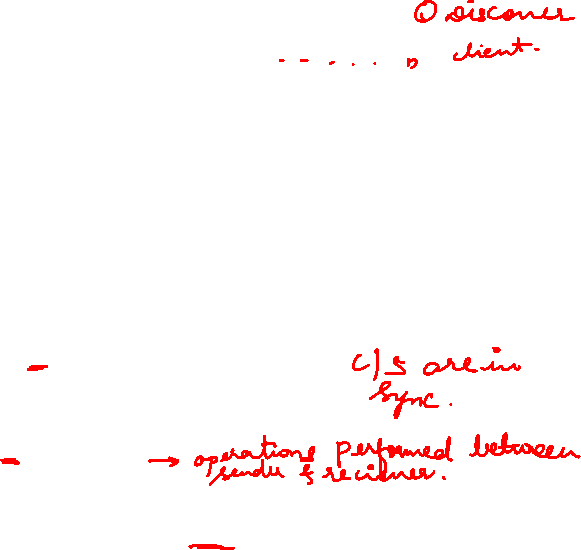 ① Discover
client.
C/S are in
Sync.
→ operations performed between
sender & reciever.